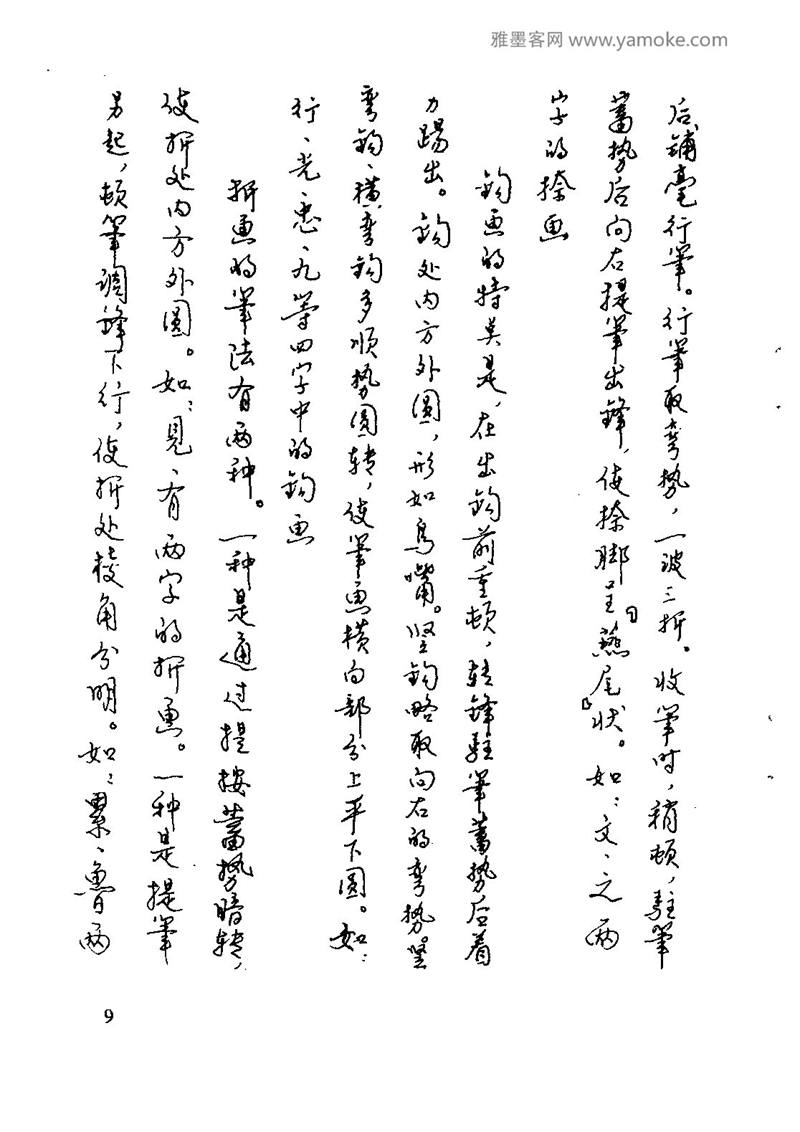 雅墨客网 www.yamoke.com
后铺毫行筆。行筆取弯势，一波三折。收筆时，稍顿，駐筆
蓄势后向右提筆出鋒，使捺脚呈“燕尾”状。如：文、之两
字的捺画
钩画的特点是，在出钩前重顿，转鋒駐筆蓄势后着
力踢出。钩处内方外圆，形如鸟嘴。竖钩略取向右的弯势。竖
弯钩、横弯钩多顺势圆转，使筆画横向部分上平下圆。如：
行、光、忠、九等四字中的钩画
折画的筆法有两种。一种是通过提按蓄势暗转，
使折处内方外圆。如：見、有两字的折画。一种是提筆
另起，顿筆调鋒下行，使折处棱角分明。如：累、魯两
9